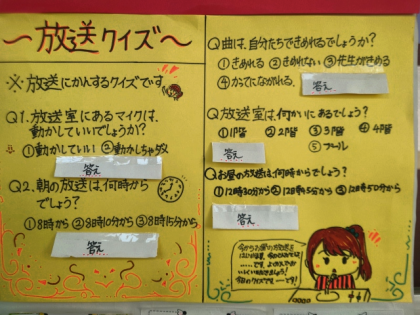 〜放送クイズ〜
※放送にかんするクイズです
Q1.放送室にあるマイクは、
動かしていいでしょうか?
①動かしていい ②動かしちゃダメ
答え
Q2.朝の放送は、何時から
でしょう?
①8時から ②8時10分から ③8時15分から
答え
Q曲は、自分たちできめれるでしょうか?
①きめれる ②きめれない ③先生がきめる
④かってにながれる
答え
Q放送室は、何かいにあるでしょう?
①1階 ②2階 ③3階 ④4階
⑤プール
答え
Qお昼の放送は、何時からでしょう?
①12時30分から ②12時45分から ③12時50分から
答え
今からお昼の放送を